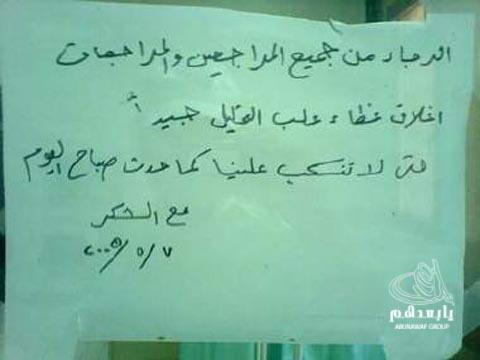 الرجاء من جميع المراجعين والمراجعات
اغلاق غطاء علب التحاليل جيداً
حتى لا تنسكب علينا كما حدث صباح اليوم
مع الشكر
٢٠٠٥/٥/٧
يابعدهم
ABUNAWAF GROUP